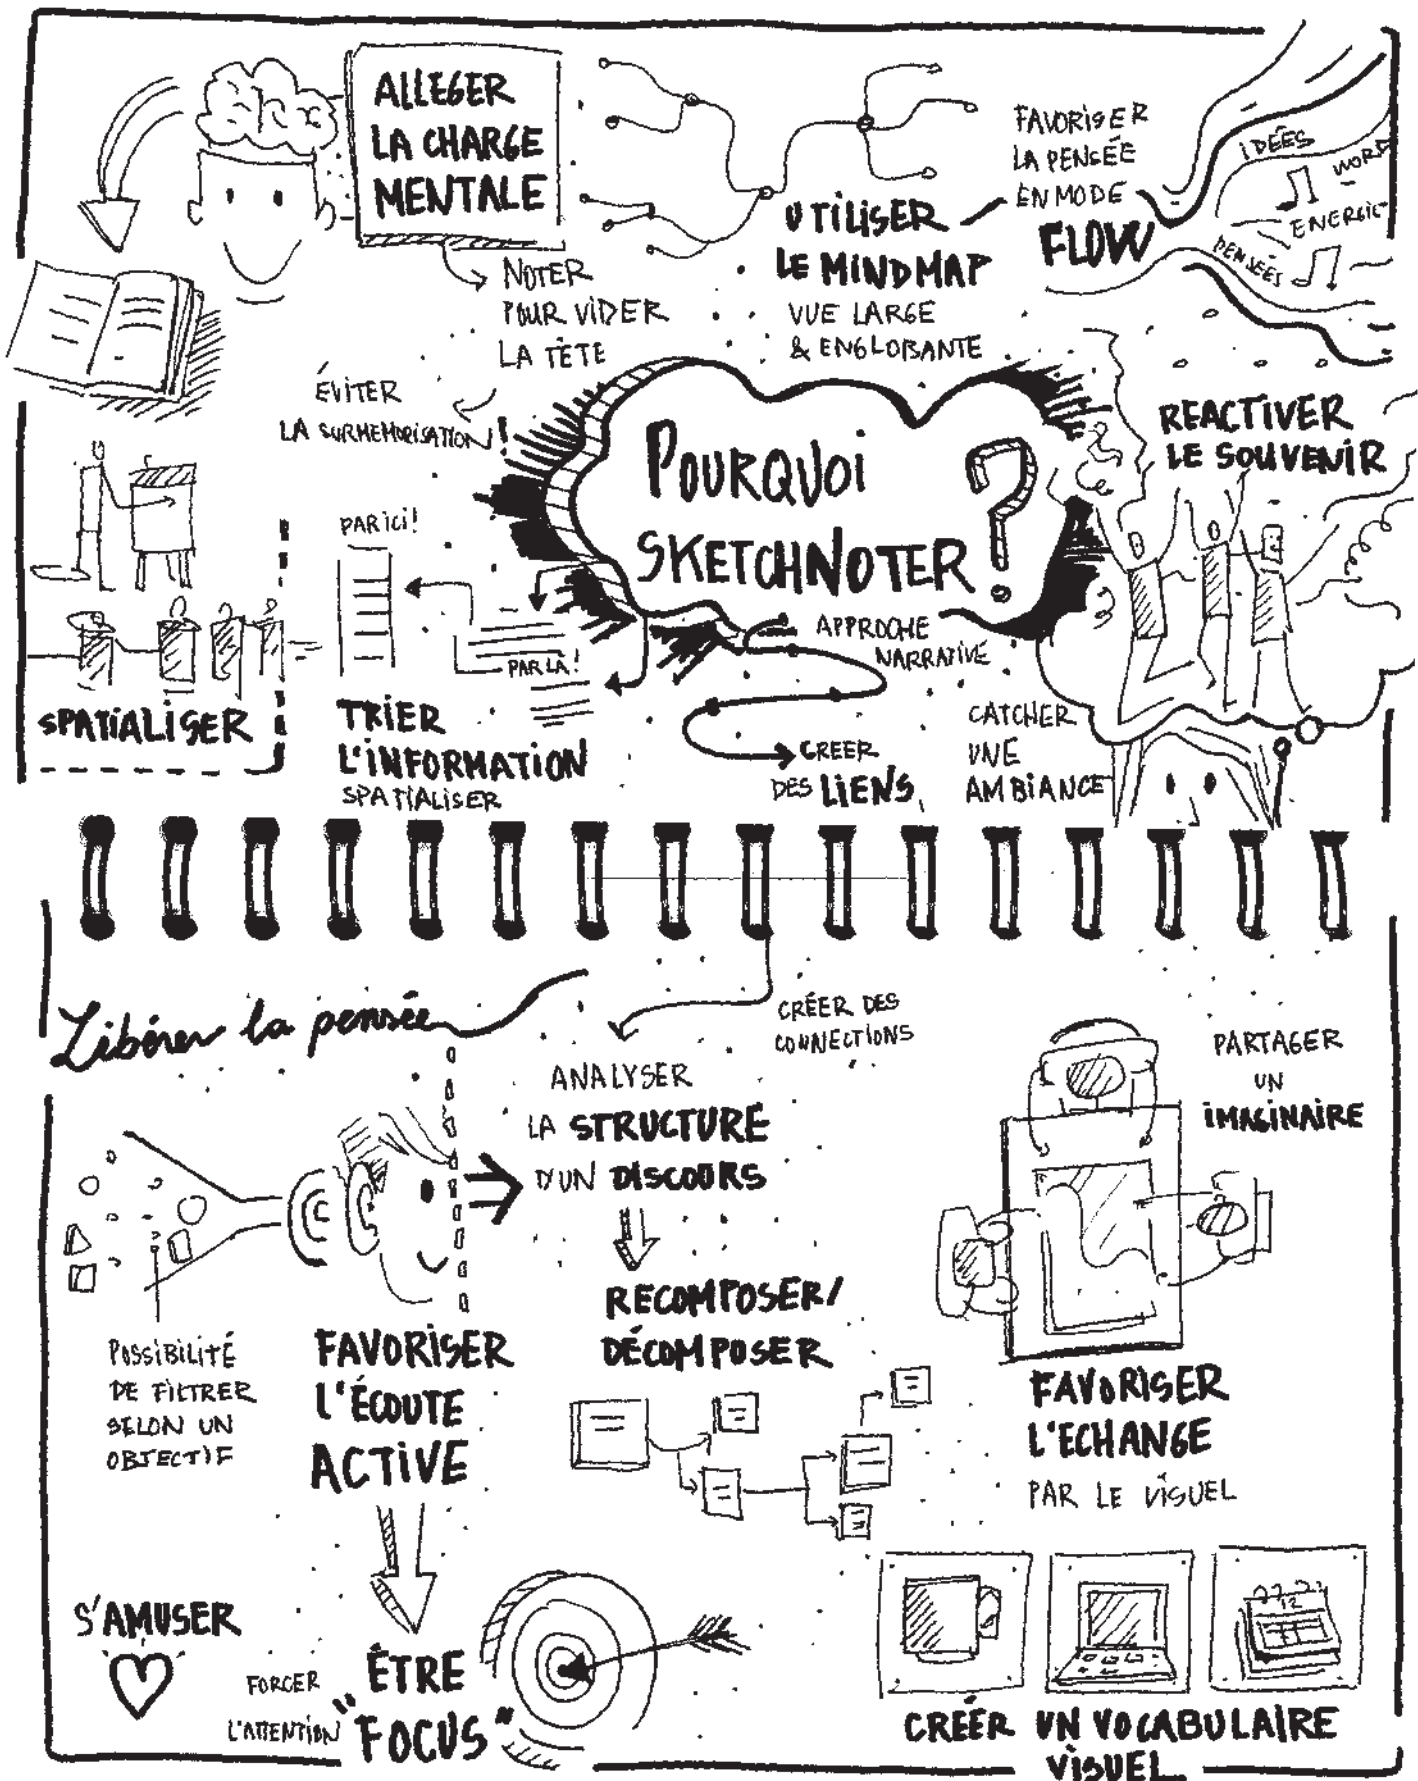 ALLEGER
LA CHARGE
MENTALE
NOTER
POUR VIDER
LA TÊTE
ÉVITER
LA SURMEMORISATION!
UTILISER
LE MINDMAP
VUE LARGE
& ENGLOBANTE
FAVORISER
LA PENSÉE
EN MODE
FLOW
IDÉES
WORD
ENERGIE
PENSÉES
POURQUOI
SKETCHNOTER ?
REACTIVER
LE SOUVENIR
SPATIALISER
PAR ICI!
PAR LA!
TRIER
L'INFORMATION
SPATIALISER
APPROCHE
NARRATIVE
CREER
DES LIENS
CATCHER
UNE
AMBIANCE
Libérer la pensée
CRÉER DES
CONNECTIONS
ANALYSER
LA STRUCTURE
D'UN DISCOURS
RECOMPOSER/
DÉCOMPOSER
PARTAGER
UN
IMAGINAIRE
POSSIBILITÉ
DE FILTRER
SELON UN
OBJECTIF
FAVORISER
L'ÉCOUTE
ACTIVE
FAVORISER
L'ECHANGE
PAR LE VISUEL
S'AMUSER
FORCER
L'ATTENTION
ÊTRE
"FOCUS"
12
CRÉER UN VOCABULAIRE
VISUEL